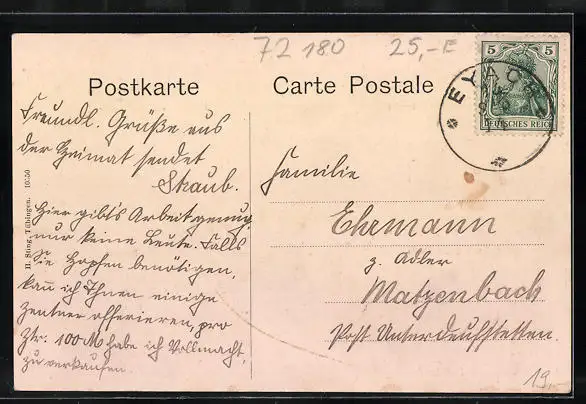 72 180 25,-E
Postkarte
Carte Postale
5 5
DEUTSCHES REICH
EYACH
Freundl. Grüße aus
der Heimat sendet
Straub.
Hier gibt's Arbeit genug
nur keine Leute. Falls
Sie Hopfen benötigen,
kann ich Ihnen einige
Zentner offerieren, pro
Ztr. 100 M habe ich Vollmacht,
zu verkaufen.
H. Sting, Tübingen. 1050
Familie
Ehrmann
z. Adler
Matzenbach
Post Unterdeufstetten.
19,-